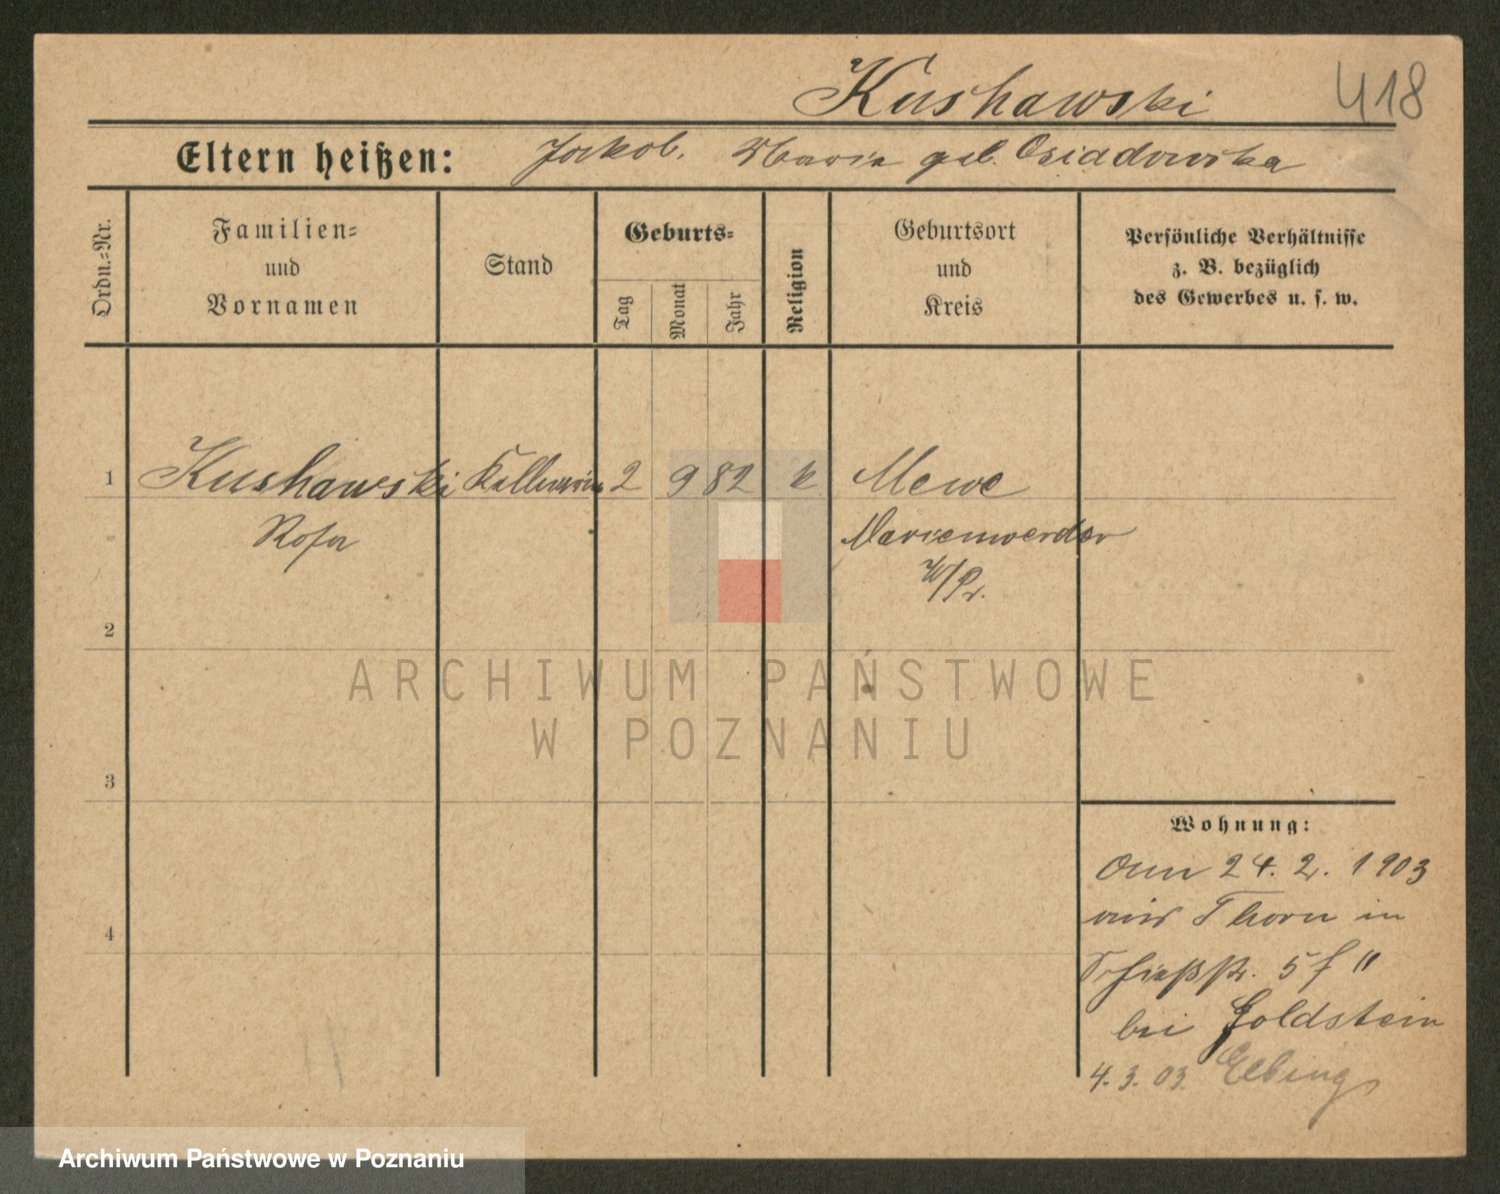 Kushawski 418
Eltern heißen: Jakob. Maria geb. Osiadowska
Ordn.-Nr.
Familien-
und
Vornamen
Stand
Geburts-
Tag
Monat
Jahr
Religion
Geburtsort
und
Kreis
Persönliche Verhältnisse
z. B. bezüglich
des Gewerbes u. s. w.
1 Kushawski Kellnerin 2 9 82 k Mewe
Rosa Marienwerder
W/Pr.
2
3
4
Wohnung:
Am 24. 2. 1903
aus Thorn in
Schießstr. 5 f "
bei Goldstein
4. 3. 03. Elbing
ARCHIWUM PAŃSTWOWE
W POZNANIU
Archiwum Państwowe w Poznaniu